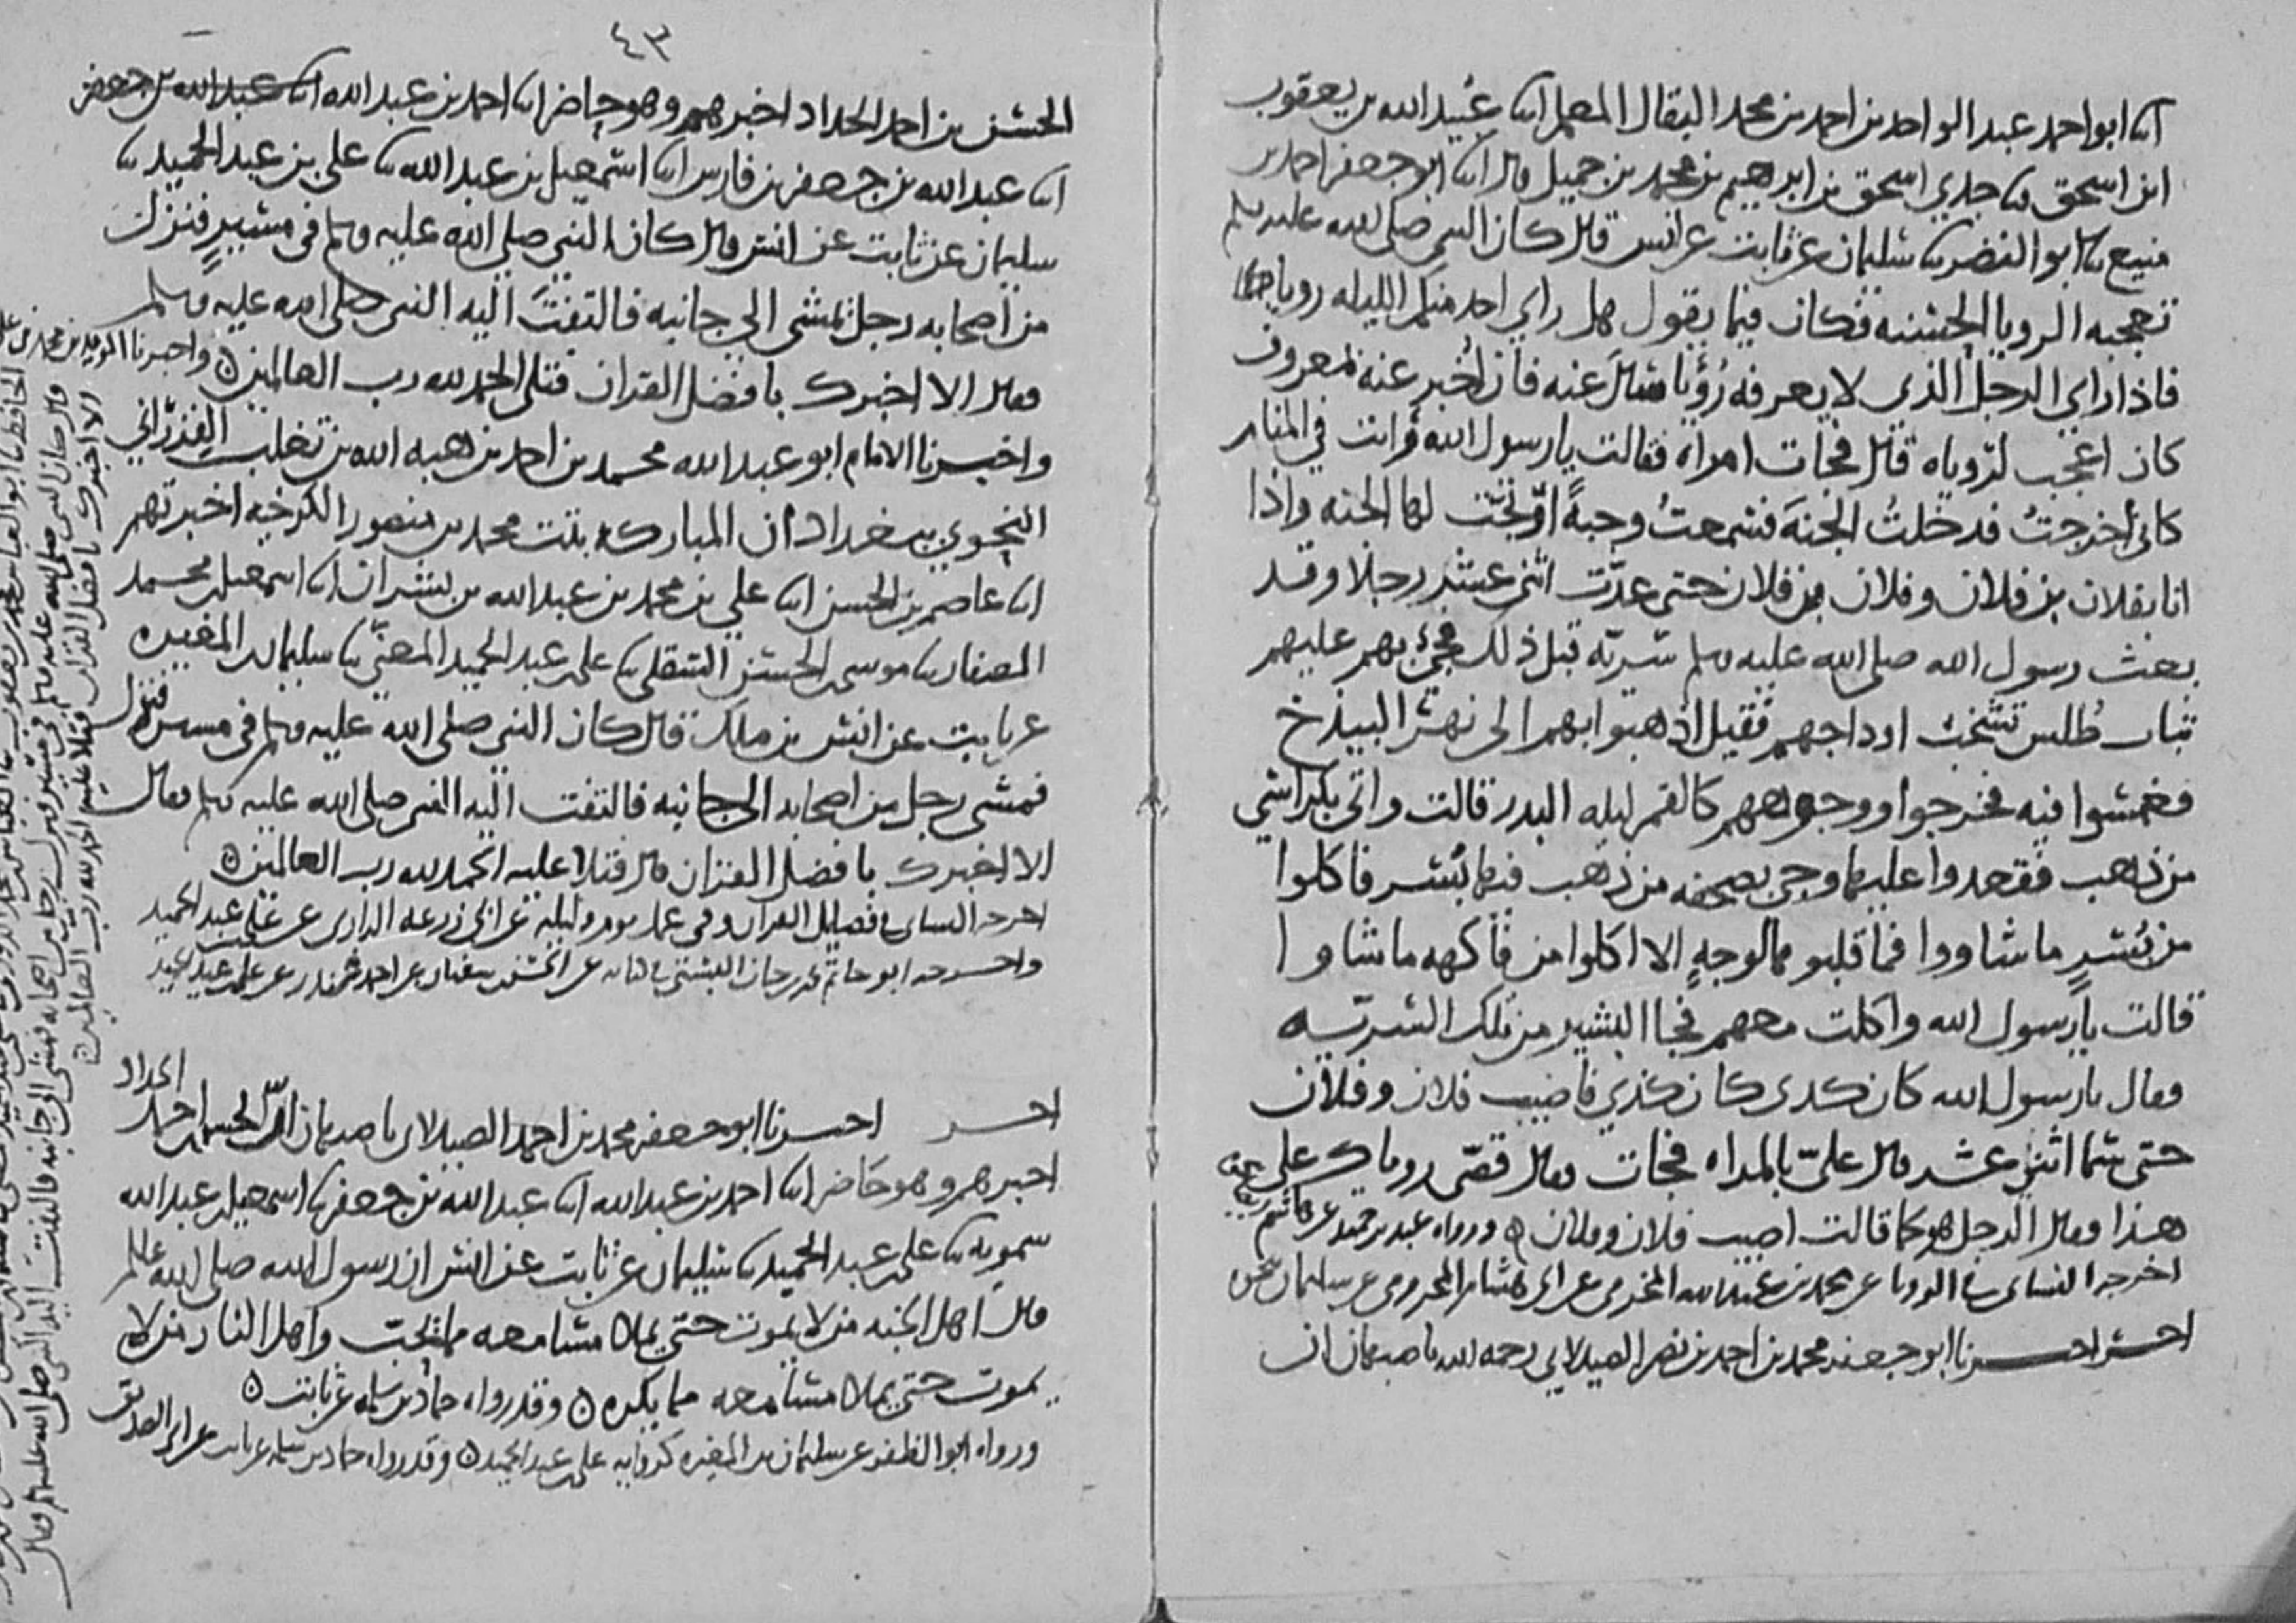 انا ابو احمد عبد الواحد بن احمد بن محمد البقال المعلم انا عبيد الله بن يعقوب
ابن اسحق نا جدي اسحق بن ابرهيم بن محمد بن جميل قال انا ابو جعفر احمد بن
منيع نا ابو النضر نا سليمان عن ثابت عن انس قال كان النبي صلى الله عليه وسلم
تعجبه الرويا الحسنه فكان فيما يقول هل راي احد منكم الليله رويا
فاذا راي الرجل الذي لا يعرفه رُؤيا سال عنه فان اُخبر عنه بمعروف
كان اعجب لروياه قال فجات امراة فقالت يا رسول الله رايت في المنام
كاني أخرجتُ فدخلتُ الجنةَ فسمعتُ وجبةً ارتجّت لها الجنه واذا
انا بفلان بن فلان وفلان بن فلان حتى عدّت اثنى عشر رجلا وقد
بعث رسول الله صلى الله عليه وسلم سريّه قبل ذلك فجئ بهم عليهم
ثياب طُلس تشخب اوداجهم فقيل اذهبوا بهم الى نهر البيذخ
فغمسوا فيه فخرجوا ووجوههم كالقمر ليله البدر قالت واتى بكراسي
من ذهب فقعدوا عليها وجئ بصحفه من ذهب فيها بُسر فاكلوا
من بُسرٍ ما شاووا فما قلبوها لوجهٍ الا اكلوا من فاكهه ما شاوا
قالت يا رسول الله واكلت معهم فجا البشير من تلك السريّه
فقال يا رسول الله كان كذى كان كذي فاصيب فلان وفلان
حتى سما اثنى عشر قال عليّ بالمراه فجات فقال قصّى روياك على
هذا فقال الرجل هو كما قالت اصيب فلان وفلان ٥ ورواه عبد بن حميد عن هاشم
اخرجه النساى في الرويا عن محمد بن عبد الله المخرمى عن ابي هشام المخزومى عن سليمان نحوه
اخبرنا ابو جعفر محمد بن احمد بن نصر الصيدلاني رحمه الله باصبهان ان
٤٣
الحسن بن احمد الحداد اخبرهم وهو حاضر انا احمد بن عبد الله انا عبد الله بن جعفر
انا عبد الله بن جعفر بن فارس انا اسمعيل بن عبد الله نا علي بن عبد الحميد نا
سليمان عن ثابت عن انس قال كان النبي صلى الله عليه وسلم في مسيرٍ فنزل
من اصحابه رجل يمشى الى جانبه فالتفتَ اليه النبى صلى الله عليه وسلم
فقال الا اخبرك بافضل القران فتلى الحمد لله رب العالمين ٥
واخبرنا الامام ابو عبد الله محمد بن احمد بن هبه الله بن تغلب الفزراني
النحوي ببغداد ان المباركه بنت محمد بن منصور الكرخيه اخبرتهم
انا عاصم بن الحسن انا علي بن محمد بن عبد الله بن بشران انا اسمعيل بن محمد
الصفار نا موسى بن الحسن السقلي نا على بن عبد الحميد المعنّى نا سليمان بن المغيره
عن ثابت عن انس بن ملك قال كان النبي صلى الله عليه وسلم فى مسير فنزل
فمشى رجل من اصحابه الى جانبه فالتفت اليه النبى صلى الله عليه وسلم وقال
الا اخبرك بافضل القران قال فتلا عليه الحمد لله رب العالمين ٥
اخرجه النساى في فضايل القران وفى عمل يوم وليلة عن ابي زرعه الرازى عن على بن عبد الحميد
واخرجه ابو حاتم بن حبان البستي في كتابه عن الحسن بن سفيان عن احمد بن عن على بن عبد الحميد
اخبرنا ابو جعفر محمد بن احمد الصيدلاى باصبهان ان الحسن بن احمد الحداد
اخبرهم وهو حاضر انا احمد بن عبد الله انا عبد الله بن جعفر نا اسمعيل بن عبد الله
سمويه نا على بن عبد الحميد نا سليمان عن ثابت عن انس ان رسول الله صلى الله عليه وسلم
قال اهل الجنه من لا يموت حتى يملا مسامعه مما يحب واهل النار من لا
يموت حتى يملا مسامعه مما يكره ٥ وقد رواه حماد بن سلمه عن ثابت ٥
ورواه ابو الظفر عن سليمان بن المغيره كروايه على بن عبد الحميد ٥ وقد رواه حماد بن سلمه عن ثابت عن ابي الصديق
قال كان النبى صلى الله عليه وسلم فى مسير فنزل رجل من اصحابه فمشى الى جانبه فالتفت اليه النبى صلى الله عليه وسلم وقال
الا اخبرك بافضل القران فتلا عليه الحمد لله رب العالمين ٥